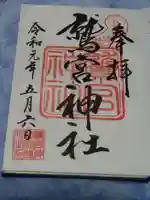 奉拝
鷲宮神社
令和元年五月六日